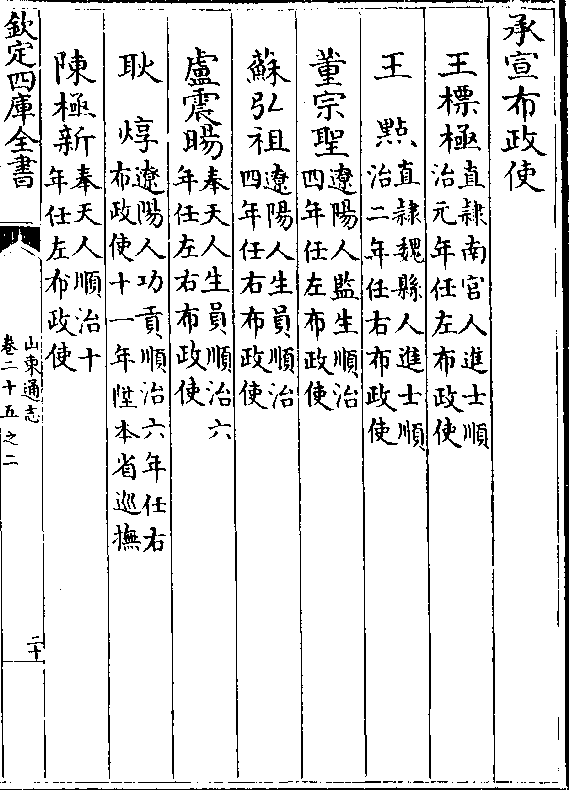 承宣布政使
王標極直隷南宫人進士順
治元年任左布政使
王㸃直隷魏縣人進士順
治二年任右布政使
董宗聖遼陽人監生順治
四年任左布政使
蘇弘祖遼陽人生員順治
四年任右布政使
盧震暘奉天人生員順治六
年任左右布政使
耿焞遼陽人功貢順治六年任右
布政使十一年陞本省巡撫
陳極新奉天人順治十
年任左布政使
欽定四庫全書
山東通志
卷二十五之二
二十